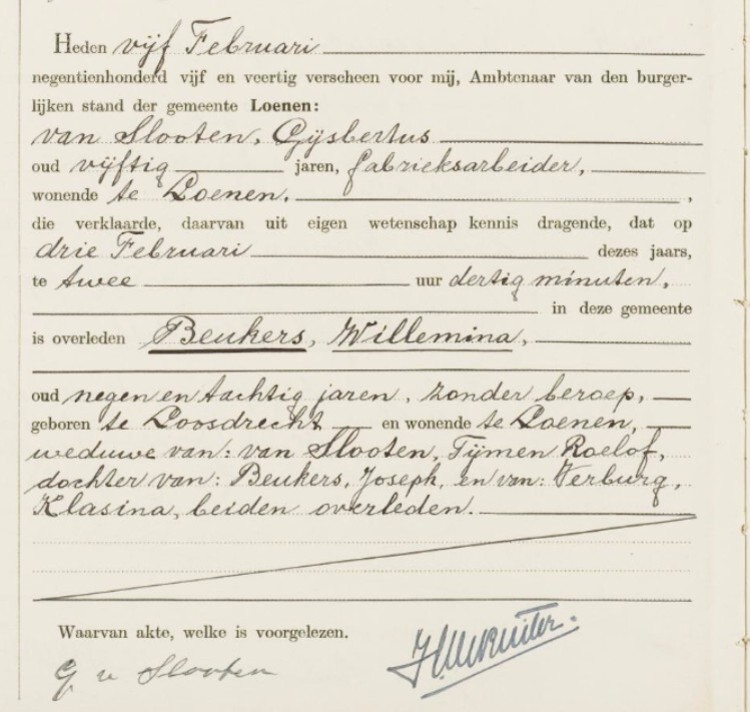 Heden vijf Februari
negentienhonderd vijf en veertig verscheen voor mij, Ambtenaar van den burger-
lijken stand der gemeente Loenen:
van Slooten, Gijsbertus
oud vijftig jaren, fabrieksarbeider,
wonende te Loenen. ,
die verklaarde, daarvan uit eigen wetenschap kennis dragende, dat op
drie Februari dezes jaars,
te twee uur dertig minuten,
in deze gemeente
is overleden Beukers, Willemina,
oud negen en tachtig jaren, zonder beroep,
geboren te Loosdrecht en wonende te Loenen,
weduwe van: van Slooten, Tijmen Roelof,
dochter van: Beukers, Joseph, en van: Verburg,
Klasina, beiden overleden.
Waarvan akte, welke is voorgelezen.
G v Slooten